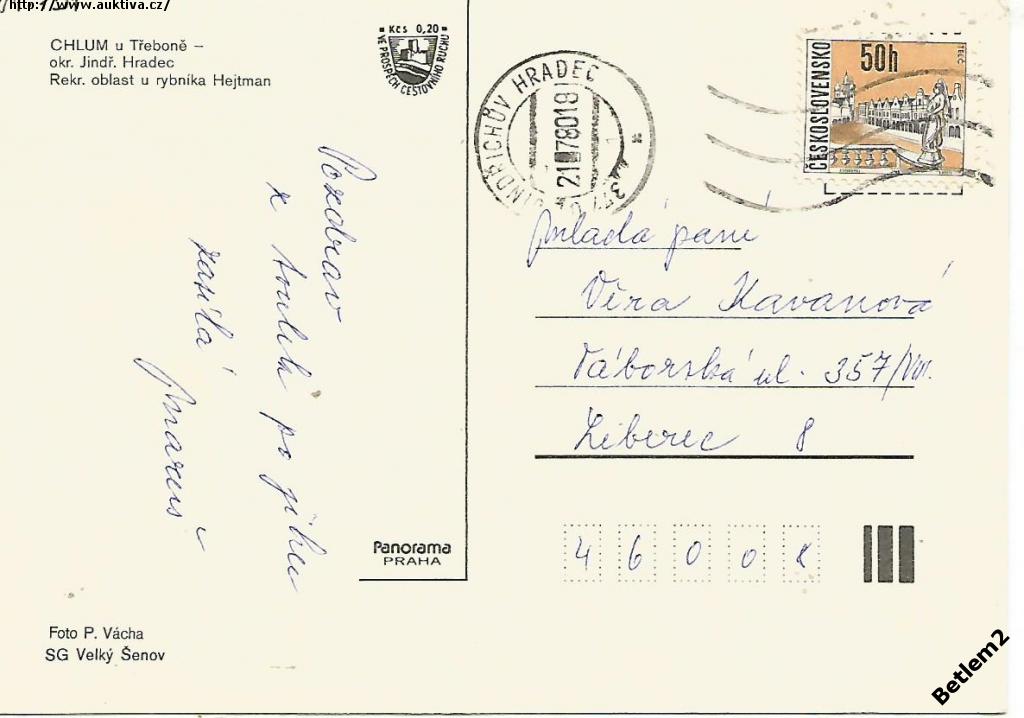 http://www.auktiva.cz/
CHLUM u Třeboně –
okr. Jindř. Hradec
Rekr. oblast u rybníka Hejtman
Kčs 0,20
VE PROSPĚCH CESTOVNÍHO RUCHU
JINDŘICHŮV HRADEC
21.-7.80-18
ČESKOSLOVENSKO
50h
TELČ
Pozdrav
z toulek po jihu
zasílá
Mladá paní
Věra Kavanová
Táborská ul. 357/VIII.
Liberec 8
46008
Panorama
PRAHA
Foto P. Vácha
SG Velký Šenov
Betlem2